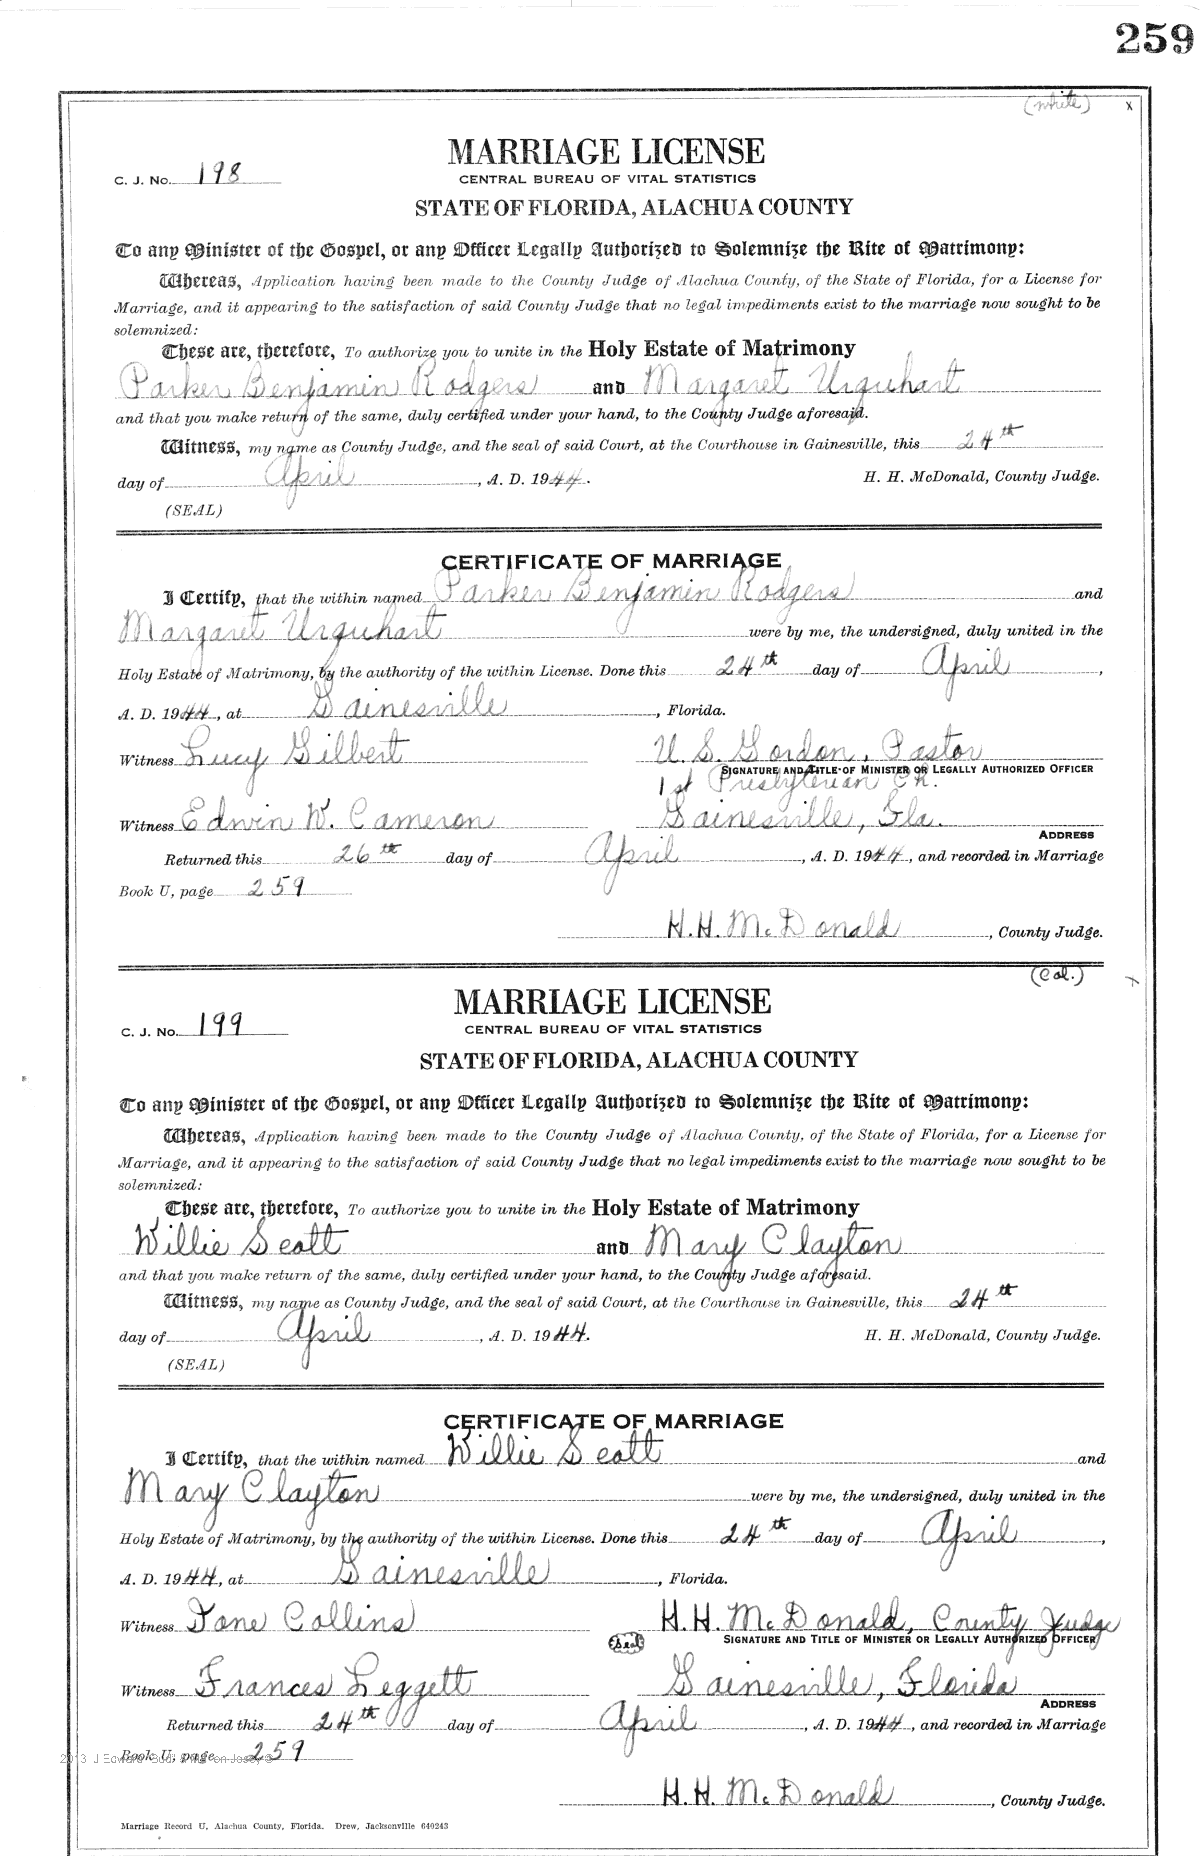 259
(white) x
MARRIAGE LICENSE
C. J. No. 198
CENTRAL BUREAU OF VITAL STATISTICS
STATE OF FLORIDA, ALACHUA COUNTY
To any Minister of the Gospel, or any Officer Legally Authorized to Solemnize the Rite of Matrimony:
Whereas, Application having been made to the County Judge of Alachua County, of the State of Florida, for a License for
Marriage, and it appearing to the satisfaction of said County Judge that no legal impediments exist to the marriage now sought to be
solemnized:
These are, therefore, To authorize you to unite in the Holy Estate of Matrimony
Parker Benjamin Rodgers and Margaret Urquhart
and that you make return of the same, duly certified under your hand, to the County Judge aforesaid.
Witness, my name as County Judge, and the seal of said Court, at the Courthouse in Gainesville, this 24th
day of April, A. D. 1944. H. H. McDonald, County Judge.
(SEAL)
CERTIFICATE OF MARRIAGE
I Certify, that the within named Parker Benjamin Rodgers and
Margaret Urquhart were by me, the undersigned, duly united in the
Holy Estate of Matrimony, by the authority of the within License. Done this 24th day of April,
A. D. 1944, at Gainesville, Florida.
Witness Lucy Gilbert U. S. Gordon, Pastor
SIGNATURE AND TITLE OF MINISTER OR LEGALLY AUTHORIZED OFFICER
1st Presbyterian Ch.
Witness Edwin W. Cameron Gainesville, Fla.
ADDRESS
Returned this 26th day of April, A. D. 1944, and recorded in Marriage
Book U, page 259
H. H. McDonald, County Judge.
(Col.) x
MARRIAGE LICENSE
C. J. No. 199
CENTRAL BUREAU OF VITAL STATISTICS
STATE OF FLORIDA, ALACHUA COUNTY
To any Minister of the Gospel, or any Officer Legally Authorized to Solemnize the Rite of Matrimony:
Whereas, Application having been made to the County Judge of Alachua County, of the State of Florida, for a License for
Marriage, and it appearing to the satisfaction of said County Judge that no legal impediments exist to the marriage now sought to be
solemnized:
These are, therefore, To authorize you to unite in the Holy Estate of Matrimony
Willie Scott and Mary Clayton
and that you make return of the same, duly certified under your hand, to the County Judge aforesaid.
Witness, my name as County Judge, and the seal of said Court, at the Courthouse in Gainesville, this 24th
day of April, A. D. 1944. H. H. McDonald, County Judge.
(SEAL)
CERTIFICATE OF MARRIAGE
I Certify, that the within named Willie Scott and
Mary Clayton were by me, the undersigned, duly united in the
Holy Estate of Matrimony, by the authority of the within License. Done this 24th day of April,
A. D. 1944, at Gainesville, Florida.
Witness Tone Collins H. H. McDonald, County Judge
(Seal) SIGNATURE AND TITLE OF MINISTER OR LEGALLY AUTHORIZED OFFICER
Witness Frances Leggett Gainesville, Florida
ADDRESS
Returned this 24th day of April, A. D. 1944, and recorded in Marriage
Book U, page 259
2013 J Edward
H. H. McDonald, County Judge.
Marriage Record U, Alachua County, Florida. Drew, Jacksonville 640243